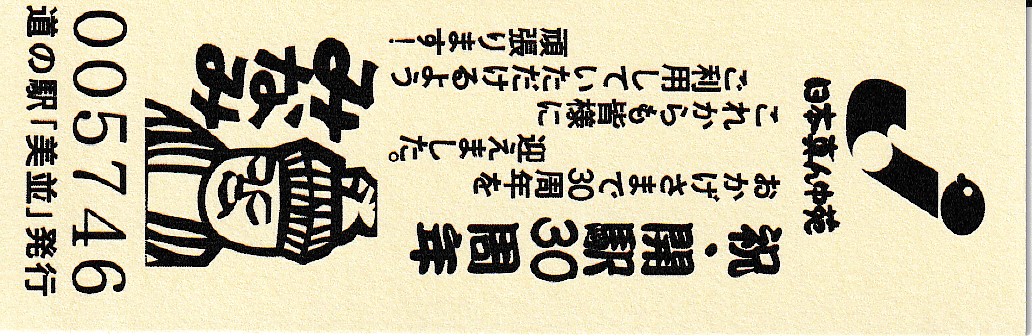 日本真ん中苑
祝・開駅30周年
おかげさまで30周年を
迎えました。
これからも皆様に
ご利用していただけるよう
頑張ります!
みなみ
005746
道の駅「美並」発行